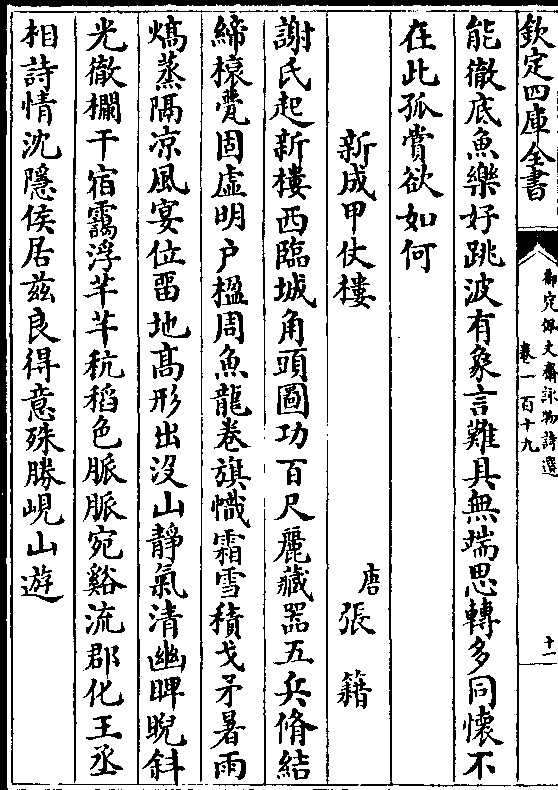 欽定四庫全書
御定佩文齋詠物詩選
卷一百十九
十一
能徹底魚樂好跳波有象言難具無端思轉多同懷不
在此孤賞欲如何
新成甲仗樓
唐張籍
謝氏起新樓西臨城角頭圖功百尺麗藏器五兵脩結
締榱甍固虛明户楹周魚龍卷旗幟霜雪積戈矛暑雨
熇蒸隔凉風宴位畱地髙形出沒山靜氣清幽睥睨斜
光徹欄干宿靄浮芊芊秔稻色脈脈宛谿流郡化王丞
相詩情沈隱侯居兹良得意殊勝峴山遊